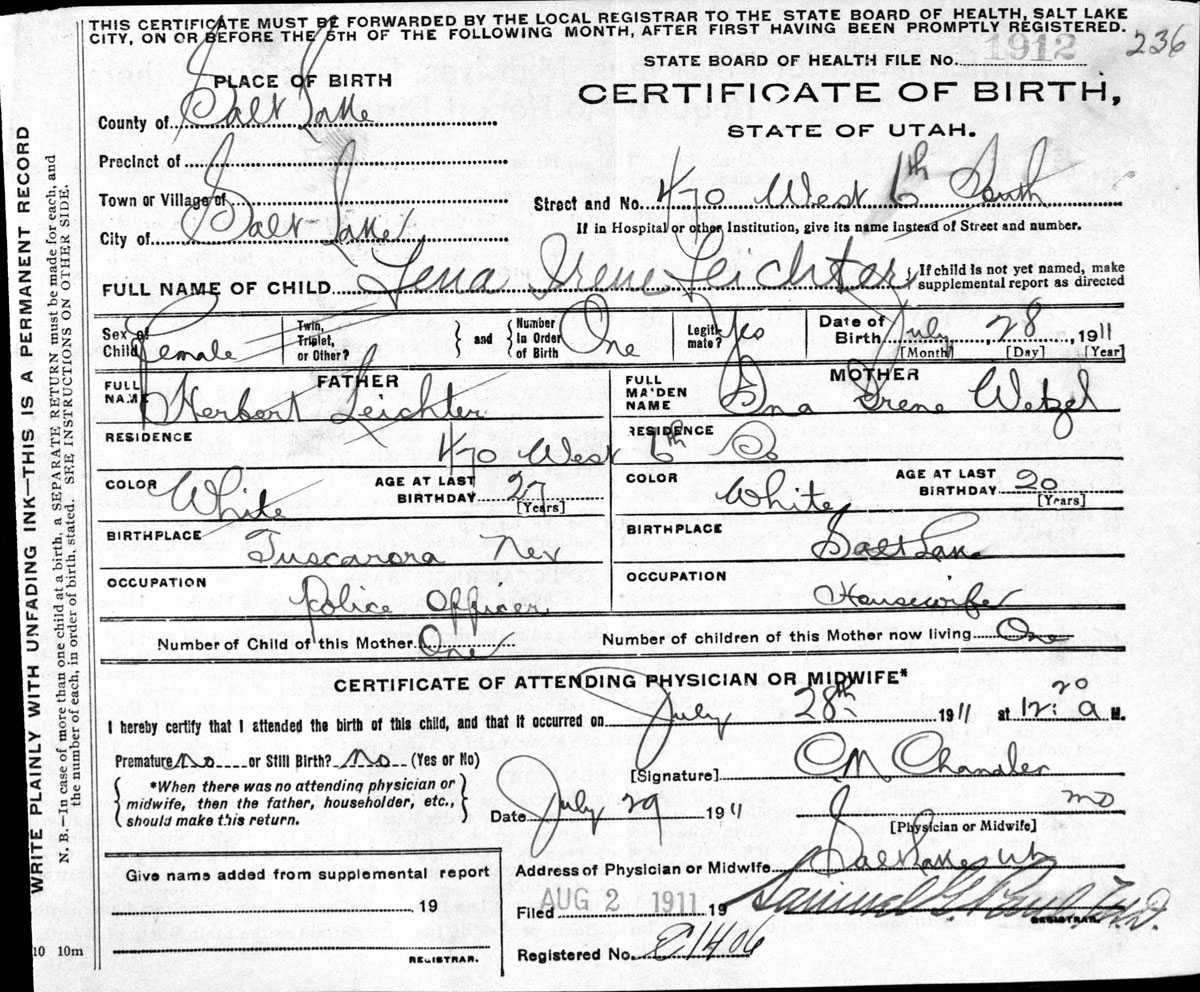 THIS CERTIFICATE MUST BE FORWARDED BY THE LOCAL REGISTRAR TO THE STATE BOARD OF HEALTH, SALT LAKE
CITY, ON OR BEFORE THE 5TH OF THE FOLLOWING MONTH, AFTER FIRST HAVING BEEN PROMPTLY REGISTERED.
236
STATE BOARD OF HEALTH FILE No. 1912
PLACE OF BIRTH
CERTIFICATE OF BIRTH,
STATE OF UTAH.
County of Salt Lake
Precinct of
Town or Village of
Street and No. 470 West 6th South
City of Salt Lake
If in Hospital or other Institution, give its name instead of Street and number.
FULL NAME OF CHILD Lena Irene Leichter
If child is not yet named, make
supplemental report as directed
Sex of Child Female
Twin, Triplet, or Other?
and
Number in Order of Birth One
Legitimate? Yes
Date of Birth July 28, 1911
[Month] [Day] [Year]
FATHER
MOTHER
FULL NAME Herbert Leichter
FULL MAIDEN NAME Ina Irene Wetzel
RESIDENCE
RESIDENCE
470 West 6th So
COLOR White
AGE AT LAST BIRTHDAY 27
[Years]
COLOR White
AGE AT LAST BIRTHDAY 20
[Years]
BIRTHPLACE Tuscarora Nev
BIRTHPLACE Salt Lake
OCCUPATION Police Officer
OCCUPATION Housewife
Number of Child of this Mother One
Number of children of this Mother now living One
CERTIFICATE OF ATTENDING PHYSICIAN OR MIDWIFE*
I hereby certify that I attended the birth of this child, and that it occurred on July 28th 1911 at 12:20 a M.
Premature no or Still Birth? no (Yes or No)
[Signature] CM Chandler
*When there was no attending physician or
midwife, then the father, householder, etc.,
should make this return.
Date July 29 1911
MD
[Physician or Midwife]
Address of Physician or Midwife Salt Lake Ut
Give name added from supplemental report
19
REGISTRAR.
Filed AUG 2 1911 19
Samuel G. M.D.
REGISTRAR.
Registered No. 1406
10 10m
WRITE PLAINLY WITH UNFADING INK—THIS IS A PERMANENT RECORD
N. B.—In case of more than one child at a birth, a SEPARATE RETURN must be made for each, and
the number of each, in order of birth, stated. SEE INSTRUCTIONS ON OTHER SIDE.